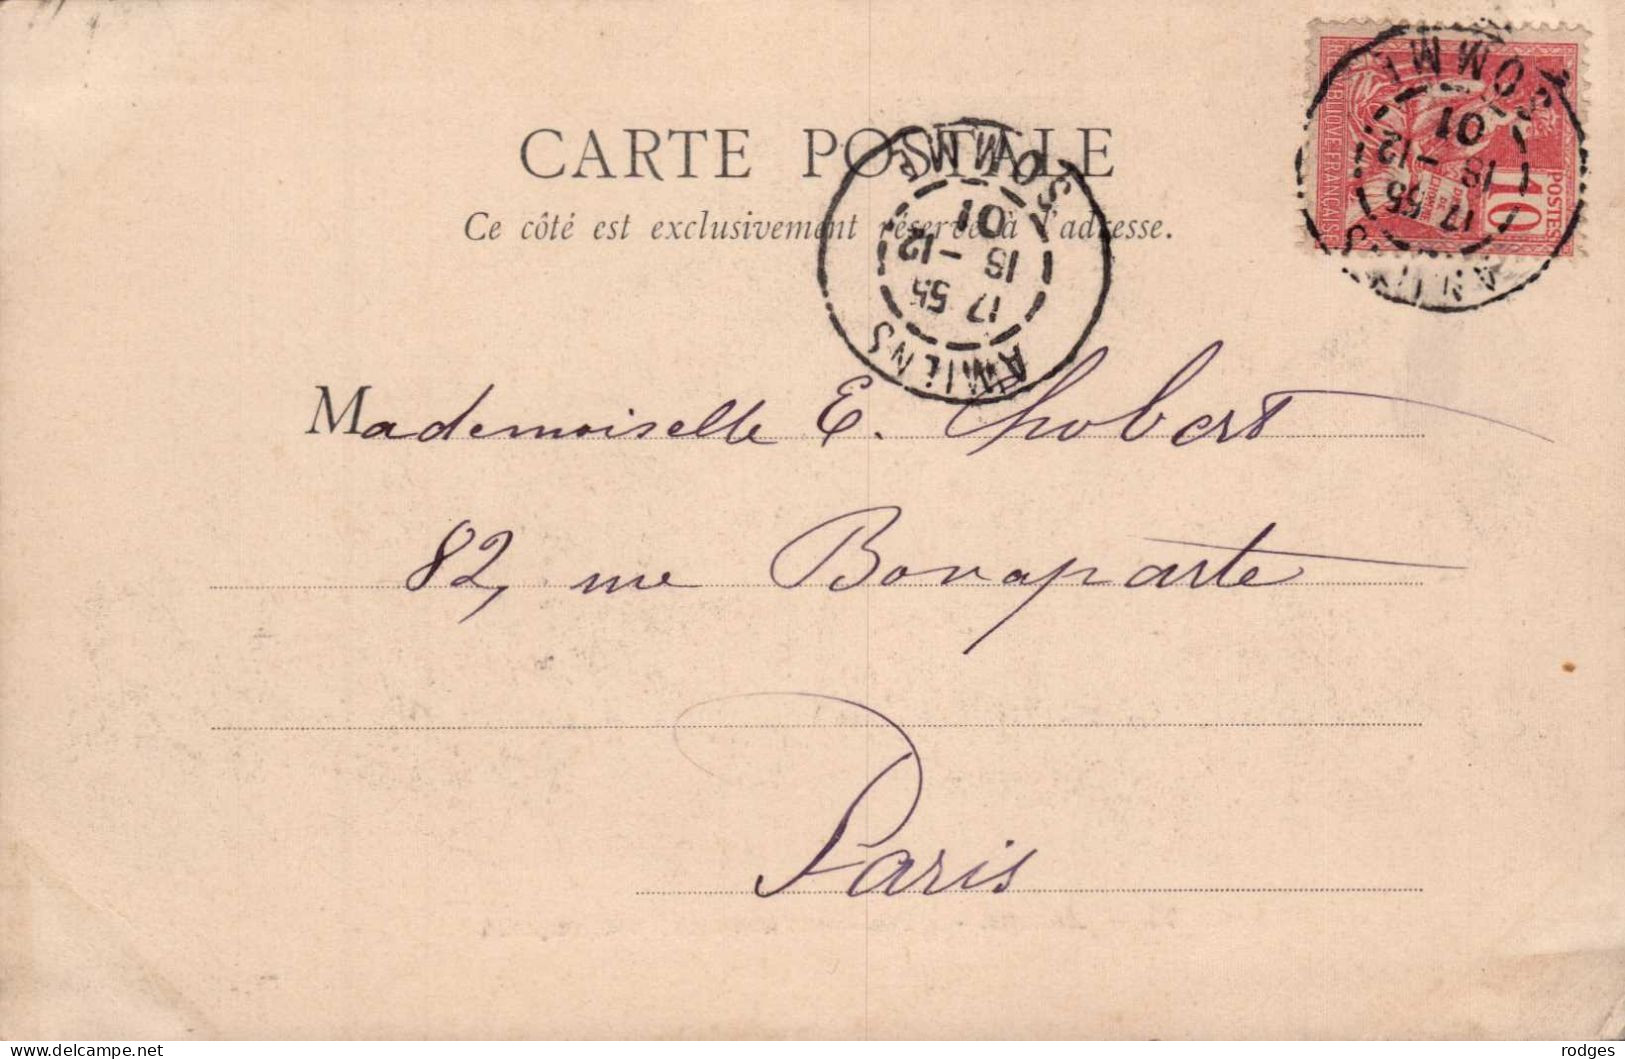 CARTE POSTALE
Ce côté est exclusivement réservé à l'adresse.
Mademoiselle E. Chobert
82, rue Bonaparte
Paris
AMIENS
17 55
18 -12
01
SOMME
RÉPUBLIQUE FRANÇAISE
POSTES
10
17 55
18 -12
01
SOMME
rodges